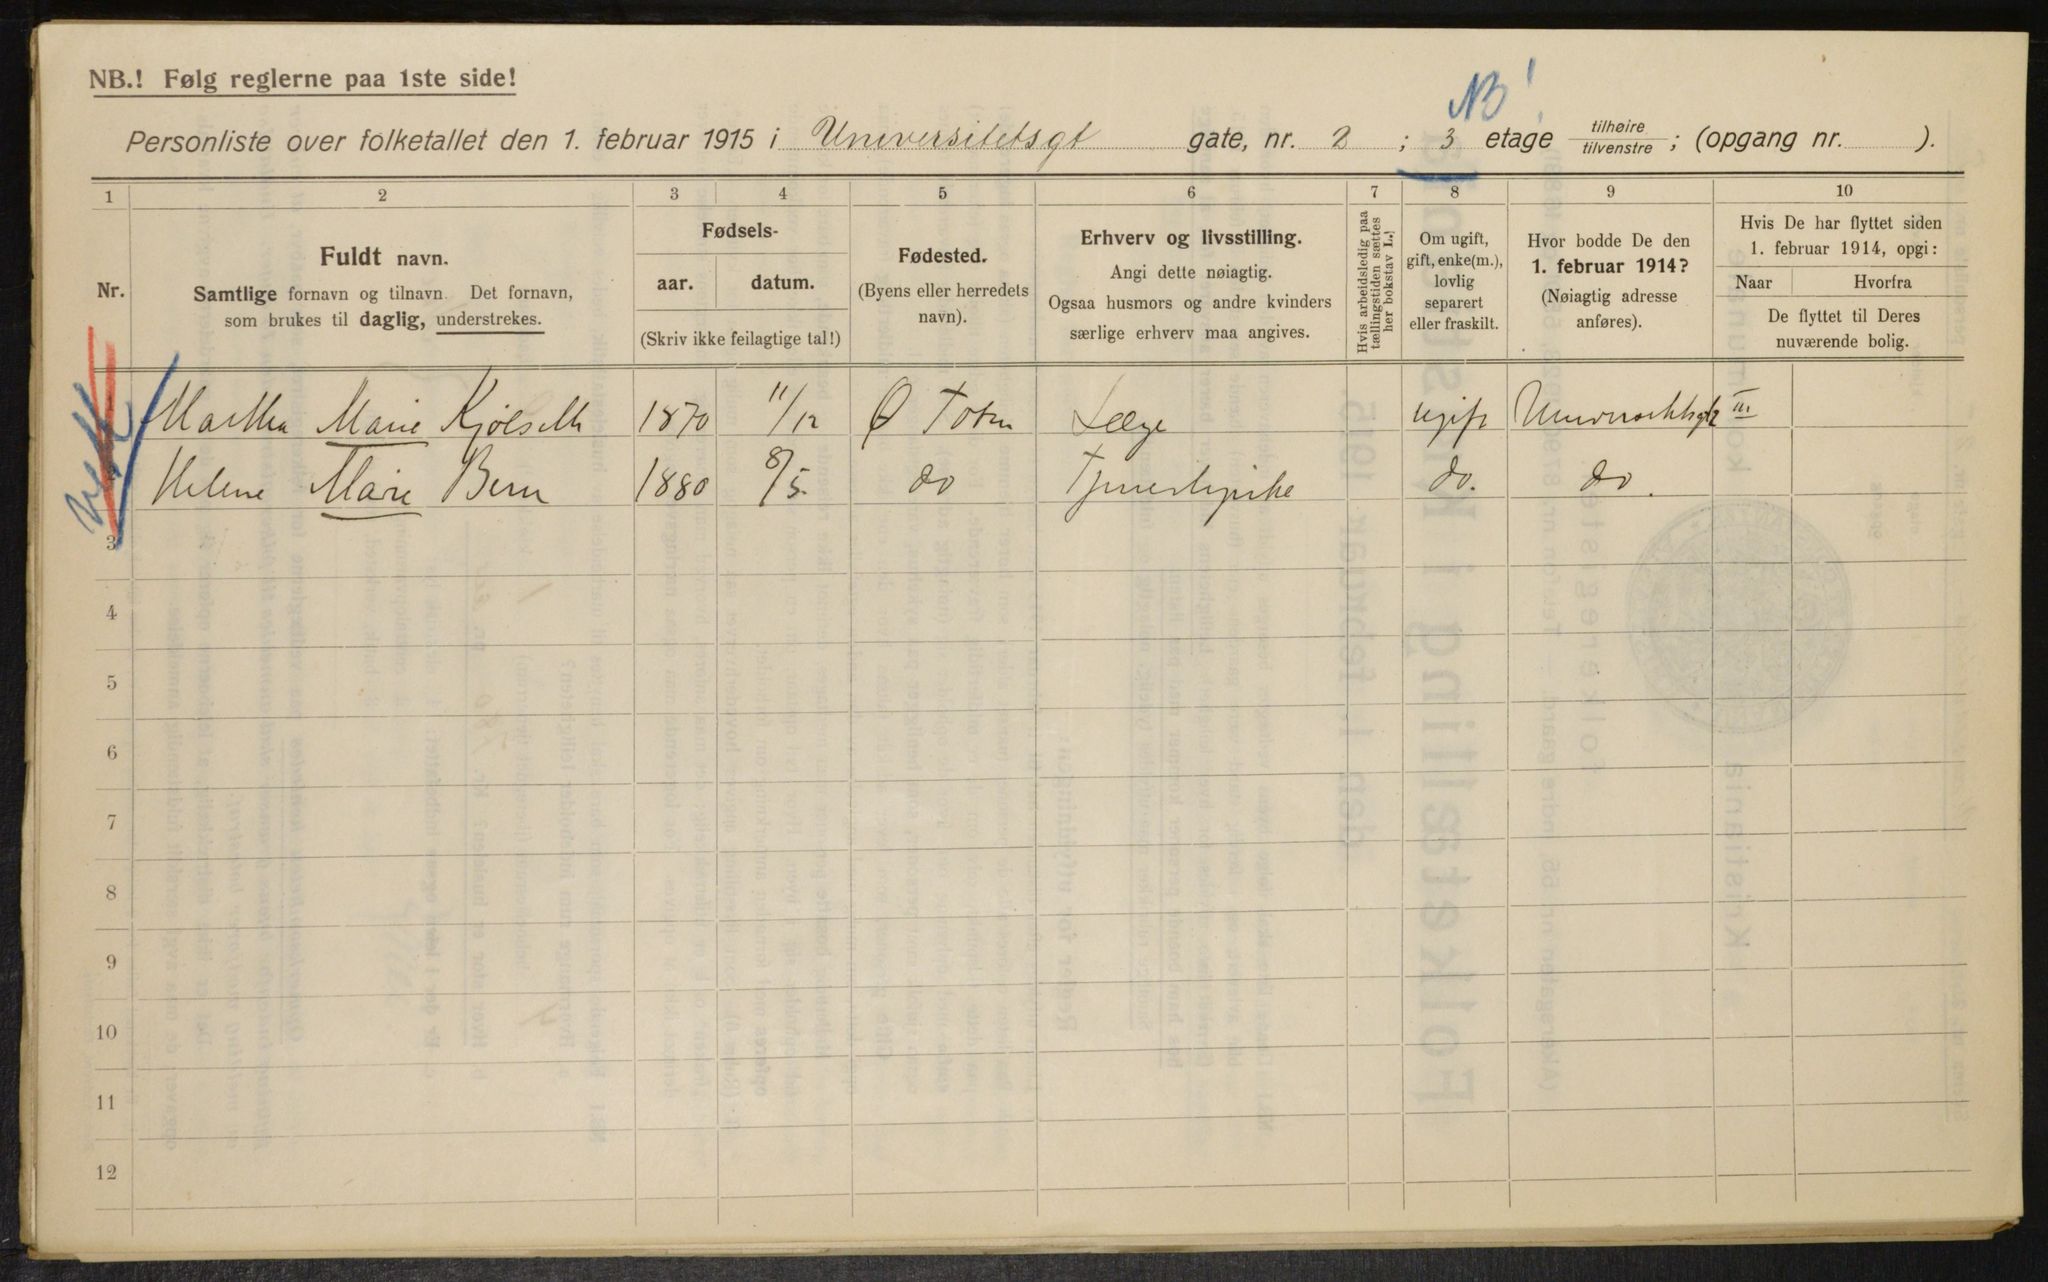 NB.! Følg reglerne paa 1ste side!
NB!
Personliste over folketallet den 1. februar 1915 i Universitetsgt gate, nr. 2 ; 3 etage tilhøire tilvenstre ; (opgang nr. ).
1 2 3 4 5 6 7 8 9 10
Nr.
Fuldt navn.
Samtlige fornavn og tilnavn. Det fornavn,
som brukes til daglig, understrekes.
Fødsels-
aar. datum.
(Skriv ikke feilagtige tal!)
Fødested.
(Byens eller herredets
navn).
Erhverv og livsstilling.
Angi dette nøiagtig.
Ogsaa husmors og andre kvinders
særlige erhverv maa angives.
Hvis arbeidsledig paa
tællingstiden sættes
her bokstav L.!
Om ugift,
gift, enke(m.),
lovlig
separert
eller fraskilt.
Hvor bodde De den
1. februar 1914?
(Nøiagtig adresse
anføres).
Hvis De har flyttet siden
1. februar 1914, opgi:
Naar Hvorfra
De flyttet til Deres
nuværende bolig.
Martha Marie Kjølseth 1870 11/12 Ø Toten Læge ugift Universitetsgt 2 III
Helene Marie Bern 1880 8/5. do Tjenestepike do. do.
3
4
5
6
7
8
9
10
11
12